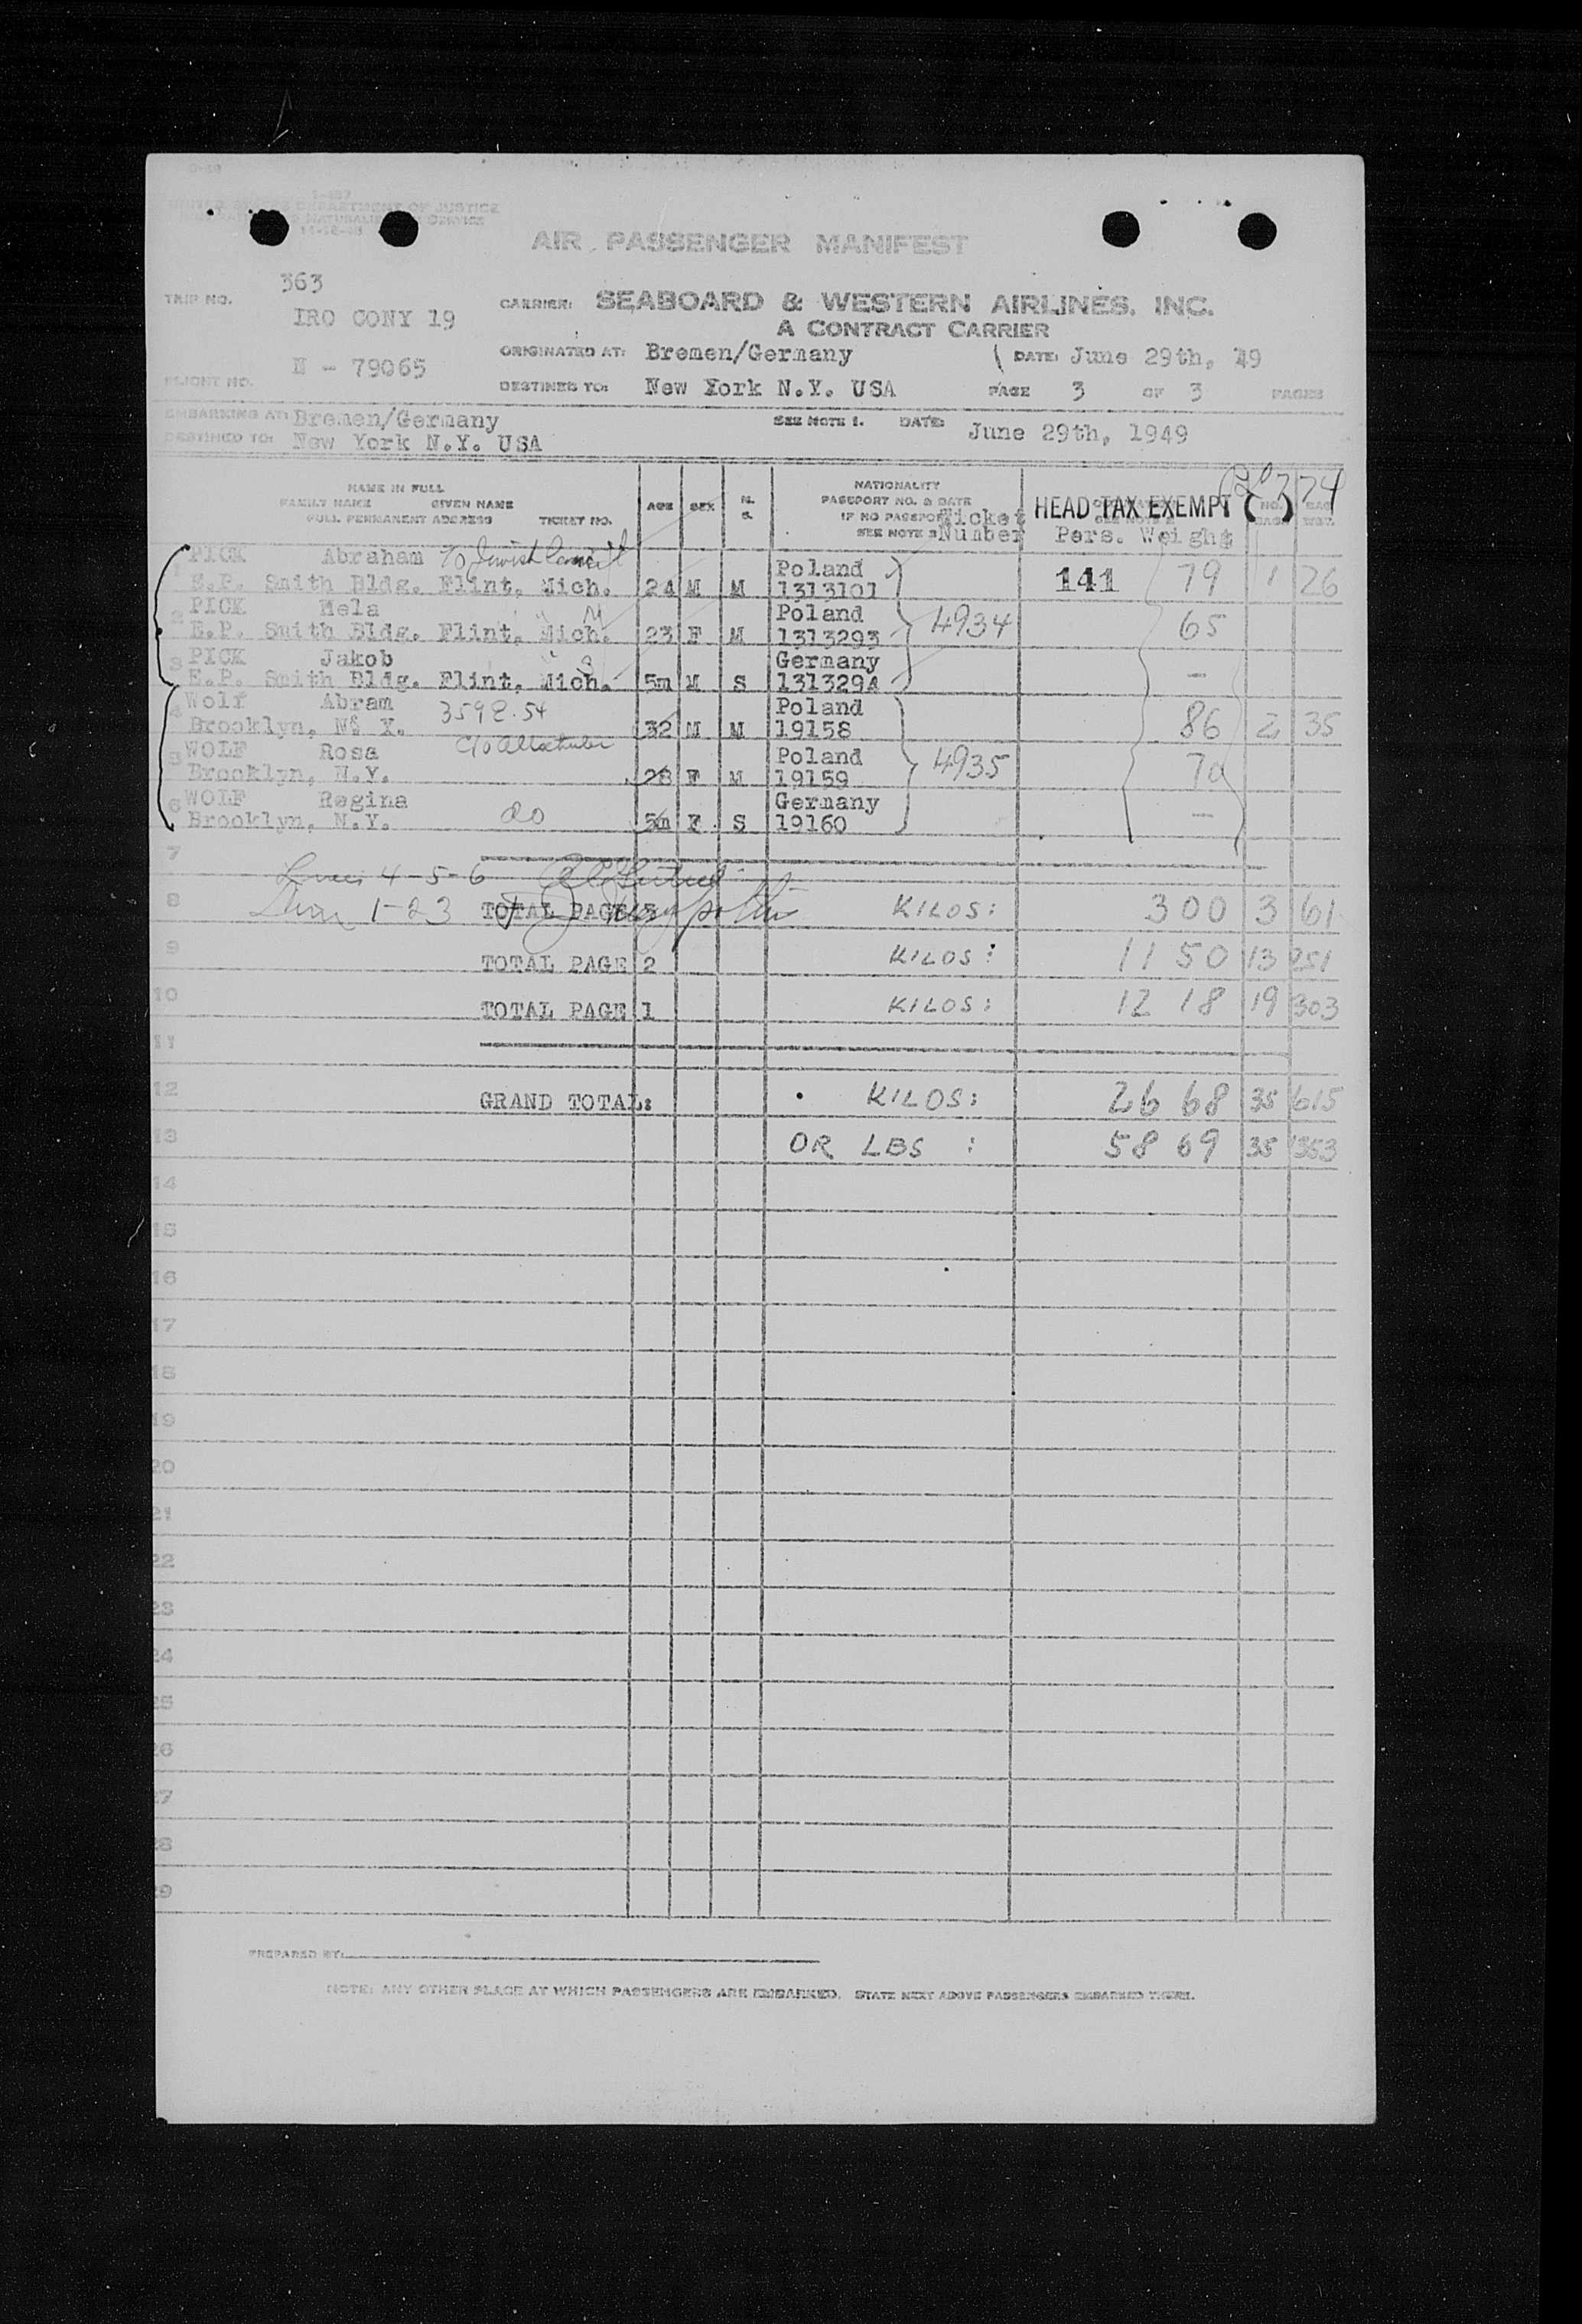 I-487
UNITED STATES DEPARTMENT OF JUSTICE
AIR PASSENGER MANIFEST
363
TRIP NO.
IRO CONY 19
CARRIER: SEABOARD & WESTERN AIRLINES, INC.
A CONTRACT CARRIER
ORIGINATED AT: Bremen/Germany DATE: June 29th, 49
FLIGHT NO. N - 79065
DESTINED TO: New York N.Y. USA PAGE 3 OF 3 PAGES
EMBARKING AT: Bremen/Germany SEE NOTE 1. DATE: June 29th, 1949
DESTINED TO: New York N.Y. USA
NAME IN FULL
FAMILY NAME GIVEN NAME
FULL PERMANENT ADDRESS TICKET NO.
AGE SEX M. S.
NATIONALITY
PASSPORT NO. & DATE
IF NO PASSPORT
SEE NOTE 3
Ticket Number
HEAD TAX EXEMPT
Pers. Weight
NO. BAG. BAG. WGT.
1 PICK Abraham c/o Jewish Council Poland
E.P. Smith Bldg. Flint, Mich. 24 M M 1313101 141 79 1 26
2 PICK Mela Poland
E.P. Smith Bldg. Flint, Mich. 23 F M 1313293 4934 65
3 PICK Jakob Germany
E.P. Smith Bldg. Flint, Mich. 5m M S 1313294 -
4 Wolf Abram 359 E. 54 Poland
Brooklyn, N. Y. 32 M M 19158 86 2 35
5 WOLF Rosa Poland
Brooklyn, N.Y. 28 F M 19159 4935 70
6 WOLF Regina Germany
Brooklyn, N.Y. do 5m F S 19160 -
7
Lines 4-5-6
8 1-23 TOTAL PAGE 3 KILOS: 300 3 61
9 TOTAL PAGE 2 KILOS: 1150 13 251
10 TOTAL PAGE 1 KILOS: 1218 19 303
11
12 GRAND TOTAL: KILOS: 2668 35 615
13 OR LBS : 5869 35 1353
14
15
16
17
18
19
20
21
22
23
24
25
26
27
28
29
PREPARED BY:
NOTE: ANY OTHER PLACE AT WHICH PASSENGERS ARE EMBARKED, STATE NEXT ABOVE PASSENGERS EMBARKED THERE.